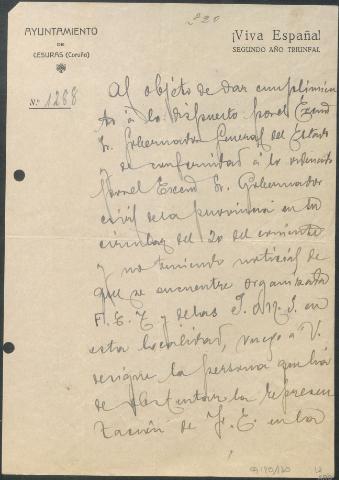 220
AYUNTAMIENTO
DE
CESURAS (Coruña)
¡Viva España!
SEGUNDO AÑO TRIUNFAL
N.º 1268
Al objeto de dar cumplimien
to á lo dispuesto por el Excmo
Sr. Gobernador General del Estado
y de conformidad á lo ordenado
por el Excmo Sr. Gobernador
civil de la provincia en su
circular del 20 del corriente
y no teniendo noticias de
que se encuentre organizada
F. E. T. y de las J. O. N. S. en
esta localidad, ruego á V.
designe la persona que ha
de ostentar la represen
tación de F. E. en la